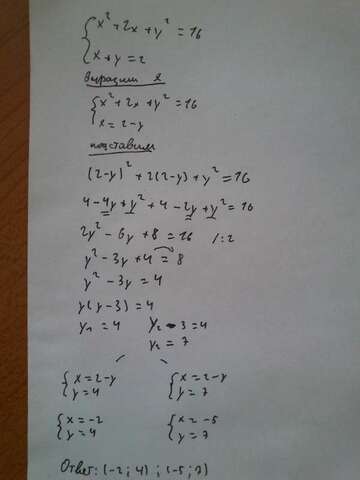 {x² + 2x + y² = 16
x + y = 2
выразим x
{x² + 2x + y² = 16
x = 2 - y
подставим
(2-y)² + 2(2-y) + y² = 16
4 - 4y + y² + 4 - 2y + y² = 16
2y² - 6y + 8 = 16 /:2
y² - 3y + 4 = 8
y² - 3y = 4
y(y-3) = 4
y₁ = 4 y₂ - 3 = 4
y₂ = 7
{x = 2-y {x = 2-y
y = 4 y = 7
{x = -2 {x = -5
y = 4 y = 7
Ответ: (-2; 4) ; (-5; 7)